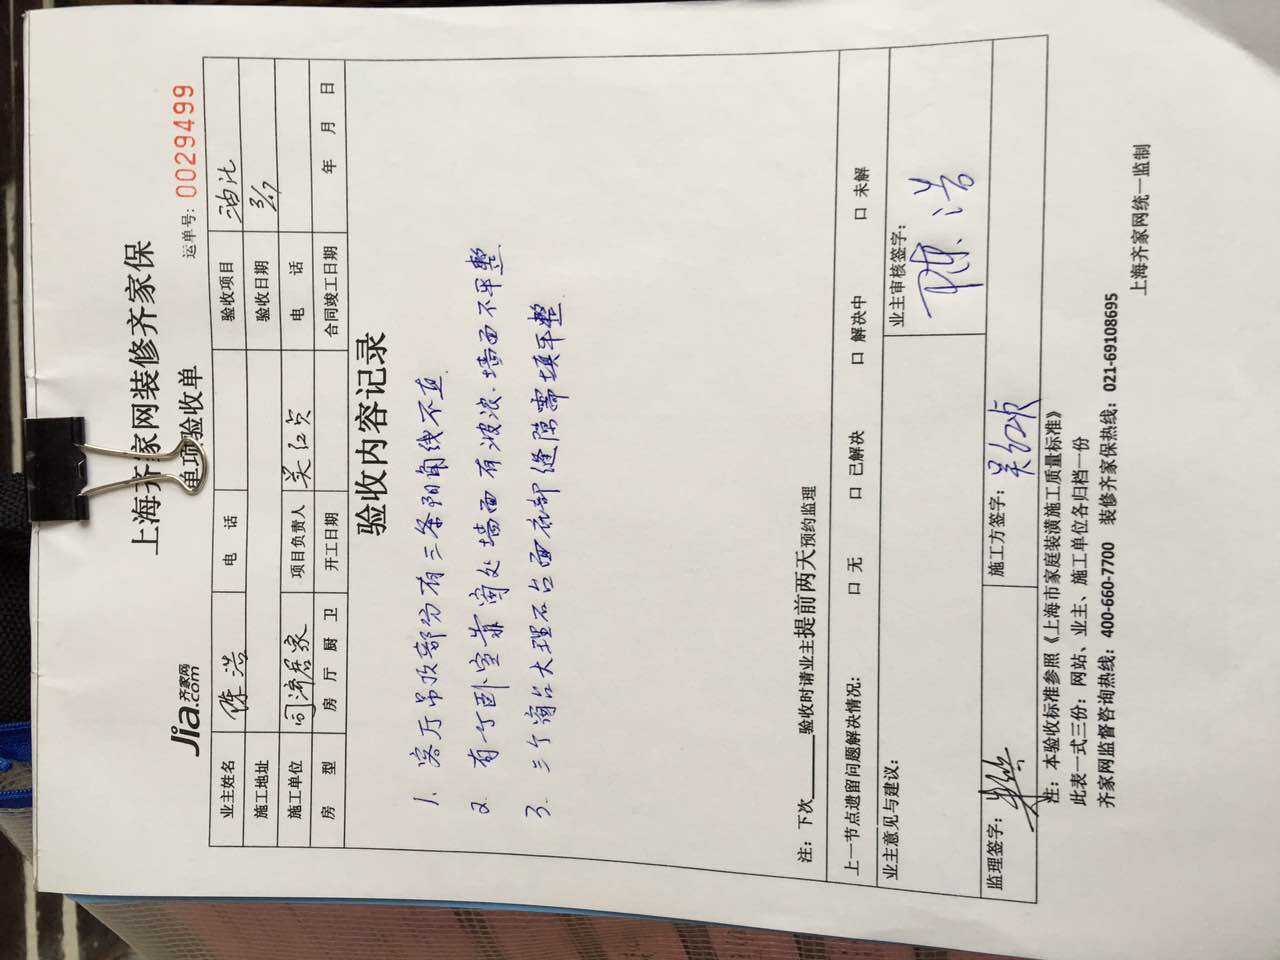 上海齐家网装修齐家保
Jia.com 齐家网
单项验收单
运单号: 0029499
业主姓名 陈浩 电 话 验收项目 油漆
施工地址 验收日期
施工单位 同济居家 项目负责人 吴红贞 电 话
房 型 房 厅 厨 卫 开工日期 合同竣工日期 年 月 日
验收内容记录
1. 客厅吊顶部分有三条阴角线不直
2. 有一个卧室靠窗处墙面有波浪.墙面不平整
3. 三个窗台大理石台面底部缝隙需填平整.
注: 下次 验收时请业主提前两天预约监理
上一节点遗留问题解决情况: 口 无 口 已解决 口 解决中 口 未解
业主意见与建议:
业主审核签字: 陈浩
监理签字: 施工方签字: 吴红贞
注: 本验收标准参照《上海市家庭装潢施工质量标准》
此表一式三份: 网站、业主、施工单位各归档一份
齐家网监督咨询热线: 400-660-7700 装修齐家保热线: 021-69108695
上海齐家网统一监制